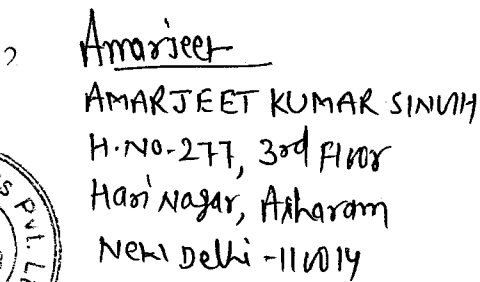 Amarjeet
AMARJEET KUMAR SINGH
H.NO-277, 3rd Floor
Hari Nagar, Ashram
New Delhi -110014
s Pvt. L